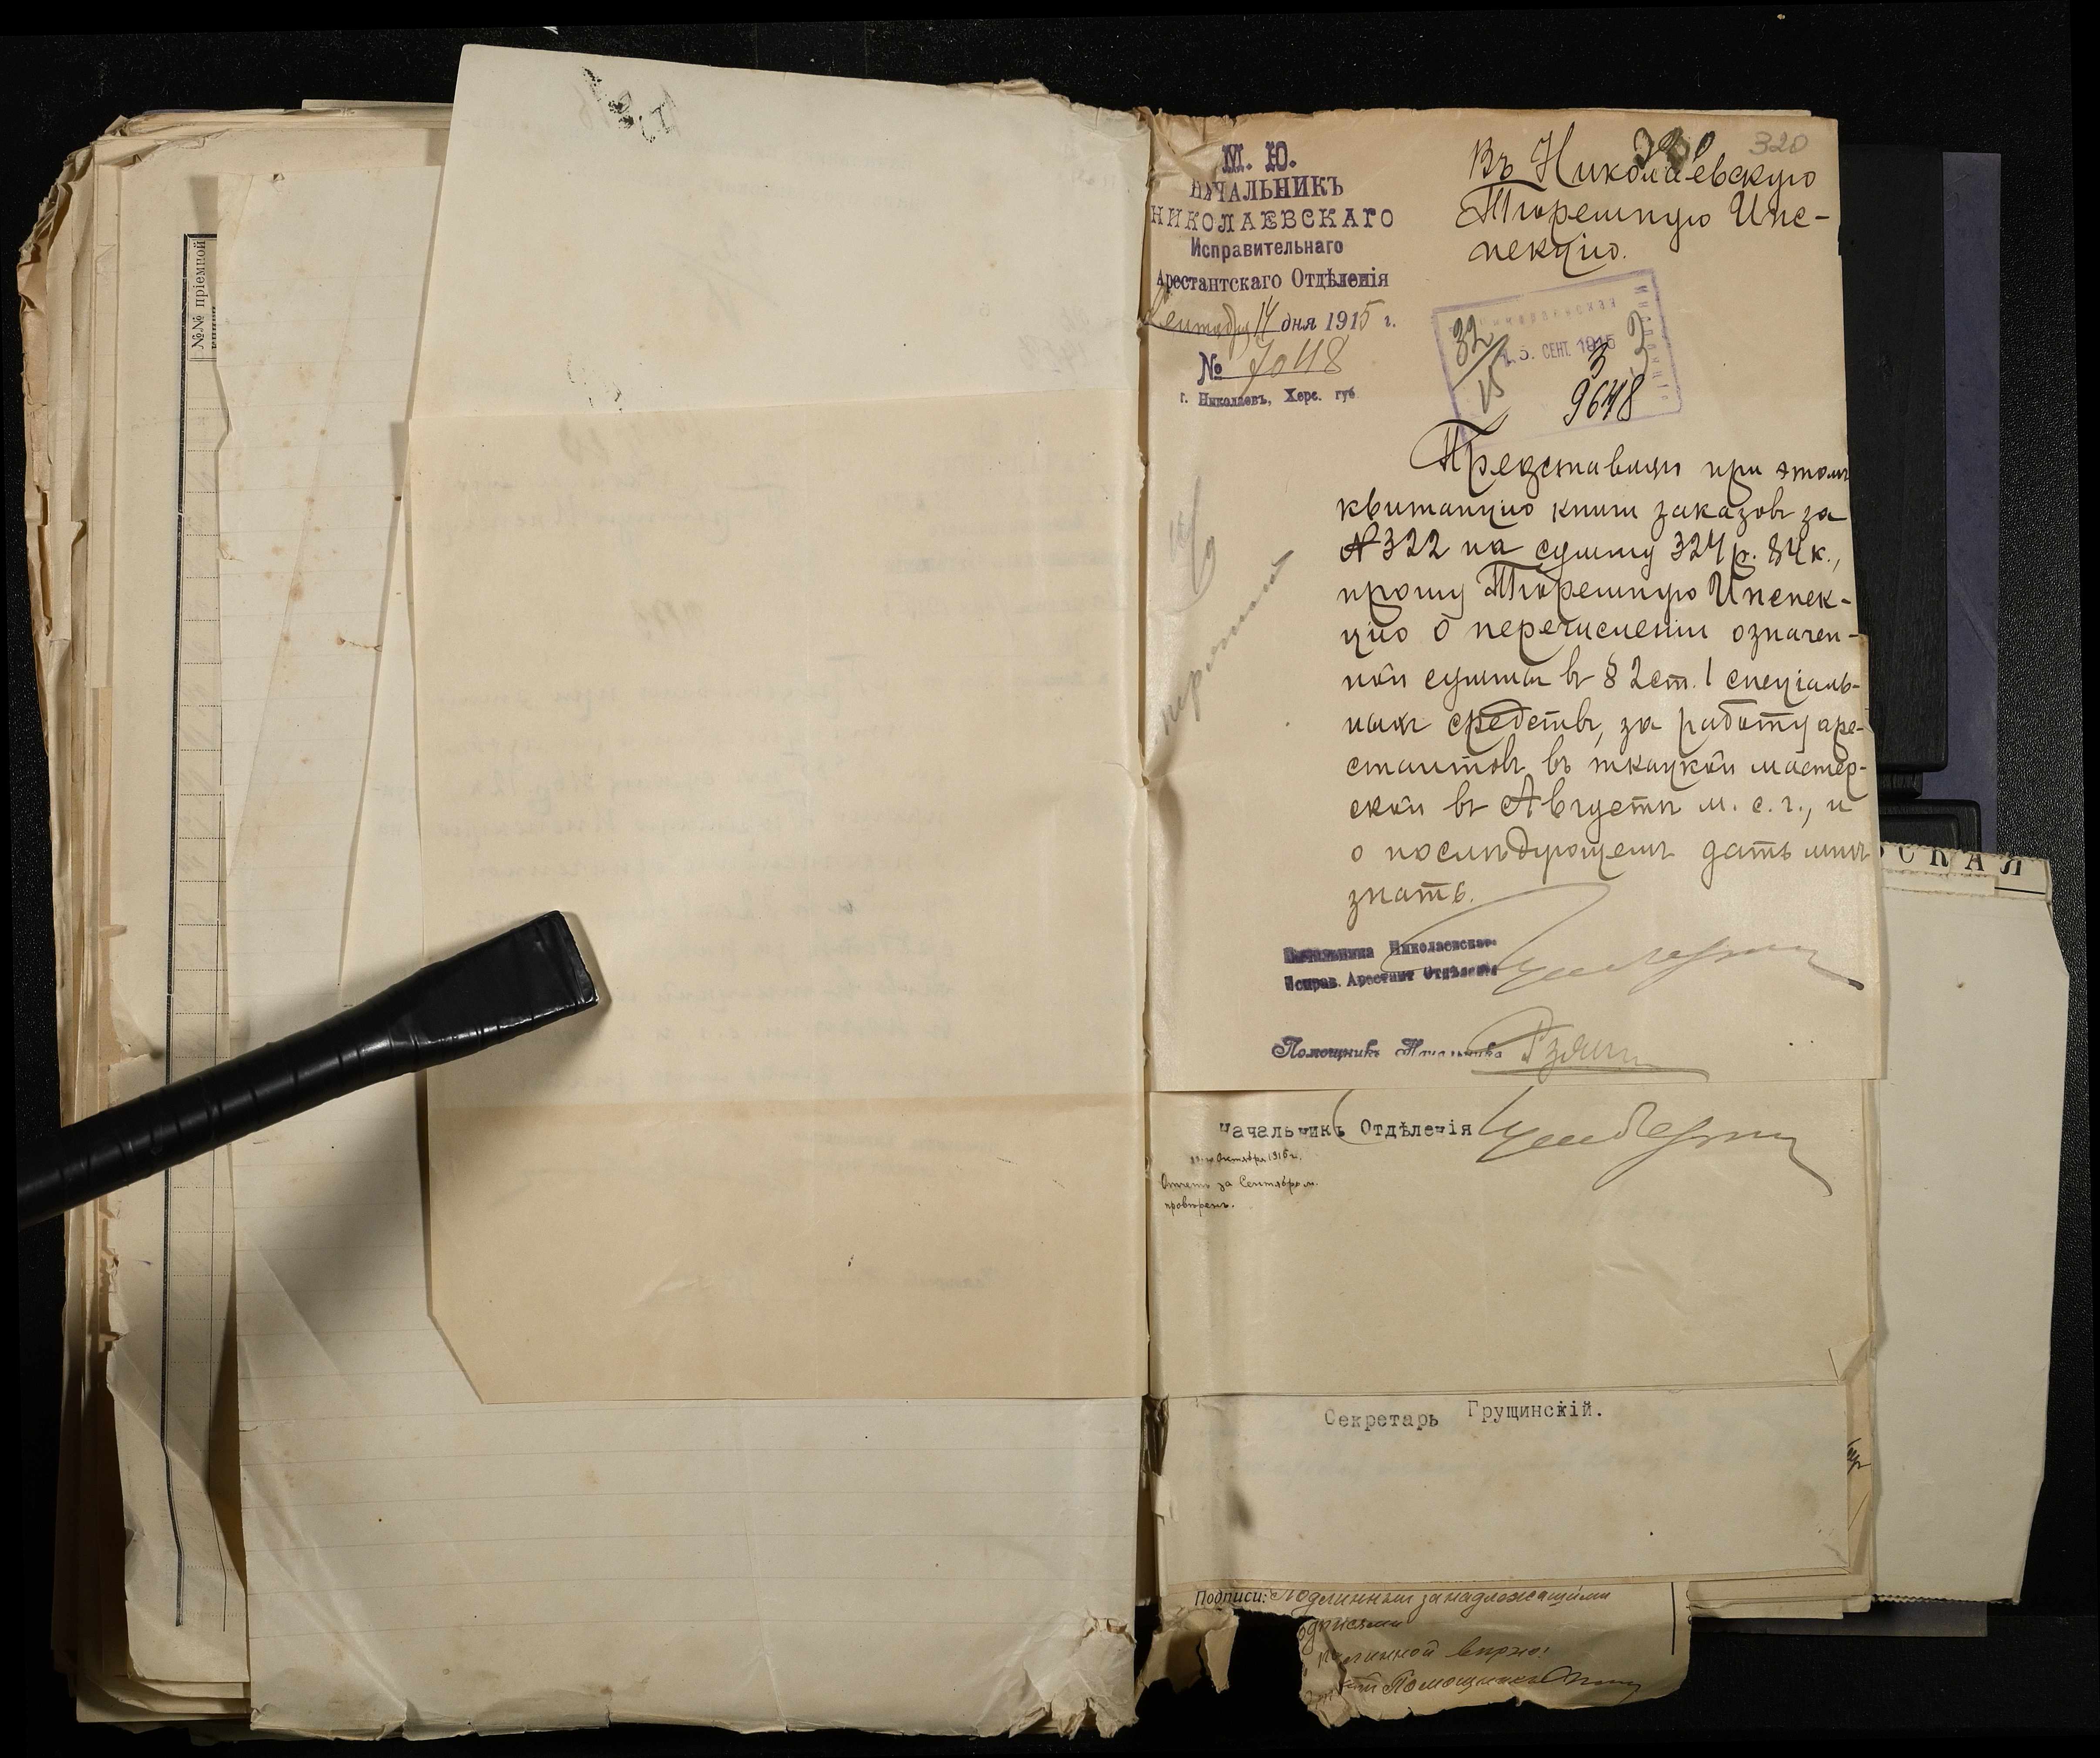 №№ пріемной
М. Ю.
НАЧАЛЬНИКЪ
НИКОЛАЕВСКАГО
Исправительнаго
Арестантскаго Отдѣленія
Сентября 14 дня 1915 г.
№ 7048
г. Николаевъ, Херс. губ.
320
Въ Николаевскую
Тюремную Инс-
пекцію.
32/15
15 СЕНТ. 1915
3
9648
Представляя при этомъ
квитанцію книги заказовъ за
№ 322 на сумму 324 р. 84 к.,
прошу Тюремную Инспек-
цію о перечисленіи означен-
ной суммы въ § 2 ст. 1 спеціаль-
ныхъ средствъ, за работу аре-
стантовъ въ ткацкой мастер-
ской въ Августѣ м. с. г., и
о послѣдующемъ дать мнѣ
знать.
Начальника Николаевскаго
Исправ. Арестант Отдѣленія
Помощникъ Начальника
Начальникъ Отдѣленія
Октября 1915 г.
Отчетъ за Сентябрь м.
провѣренъ.
Секретарь Грущинскій.
Подписи: Подлинный за надлежащими
подписями
подлинной вѣрно:
Помощникъ
СКАЯ